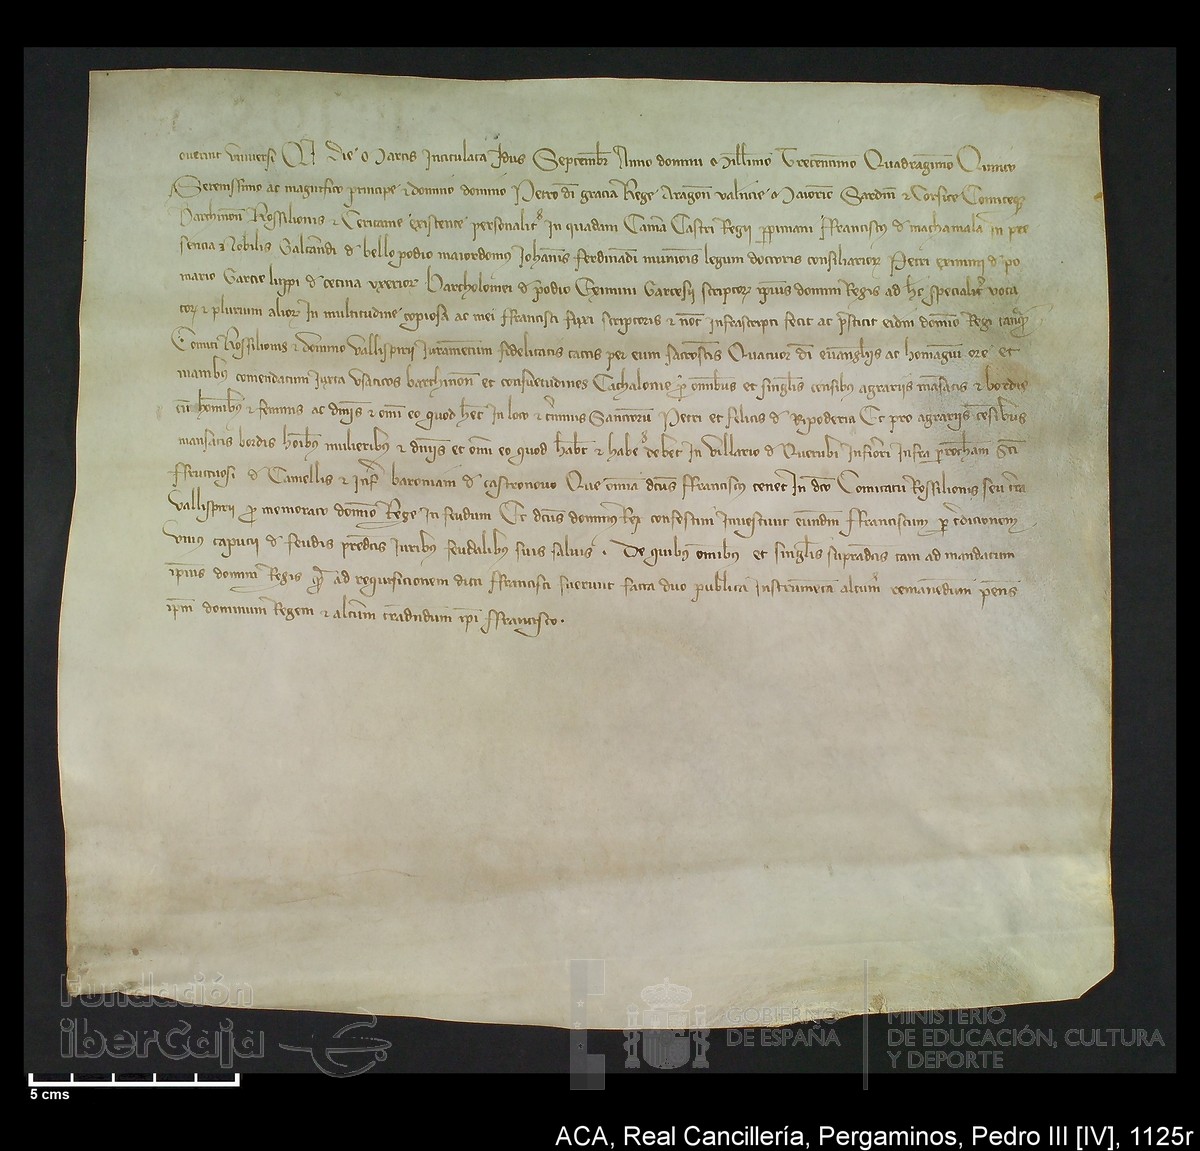 overint universi Q die Martis intitulata Idus Septembr Anno domini Millimo Trecentimo Quadragimo Quinto
Serenissimo ac magnifico principe & domno domino Petro di gracia Rege Aragon valncie Maioric Sardin & Corsice Comiteqz
Barchinon Rossilionis & Ceritanie existente personalit In quadam Camra Castri Regii ppiniani ffranciscus d machamala in pre
sencia Nobilis Galcandi d bello podio maiordomus Johannis fferdinadi munionis legum doctoris consiliarior Petri eximini d po
mario Garcie luppi d cetina uxerior Bartholomei d podio Eximini Garcesii scriptor ipius domini Regis ad hec specialit voca
tor & plurium alior in multitudine copiosa ac mei ffrancisci fuxi scriptoris & not infrascripti fecit ac prestitit eidm domino Regi tamqz
Comiti Rossilionis & domino vallispirii Juramentum fidelitatis tactis per eum sacrostis Quatuor di evangliis ac homagium ore et
manibus comendatum Juxta Usaticos barchinon et consuetudines Cathalonie p omnibus et singulis censibus agrariis mansatis & bordis
cu hominibus & feminis ac dmis & omi eo quod het in loco & tminis Sanctoru Petri et felicis d Ripoderia Et pro agrariis censibus
mansatis bordis hoibus mulieribus & dmis et omi eo quod habt & habe debet in villario d Querubi Infiori infra prochiam Sti
ffructuosi d Camellis & infr baroniam d castronovo Que omia dcus ffranciscus tenet in dco Comitatu Rossilionis seu tra
vallispirii p memorato domino Rege in feudum Et dcus dominus Rex confestim investivit eundm ffranciscum p tdicionem
unius caputii d feudis predcis iuribus feudalibus suis salvis. De quibus omibus et singulis supradcis tam ad mandatum
ipius domini Regis q ad requisicionem dicti ffrancisci fuerunt facta duo publica instrumenta alterum remanendum penes
ipm dominum Regem & alterum tradendum ipi ffrancisco.
Fundación
iberCaja
GOBIERNO
DE ESPAÑA
MINISTERIO
DE EDUCACIÓN, CULTURA
Y DEPORTE
5 cms
ACA, Real Cancillería, Pergaminos, Pedro III [IV], 1125r